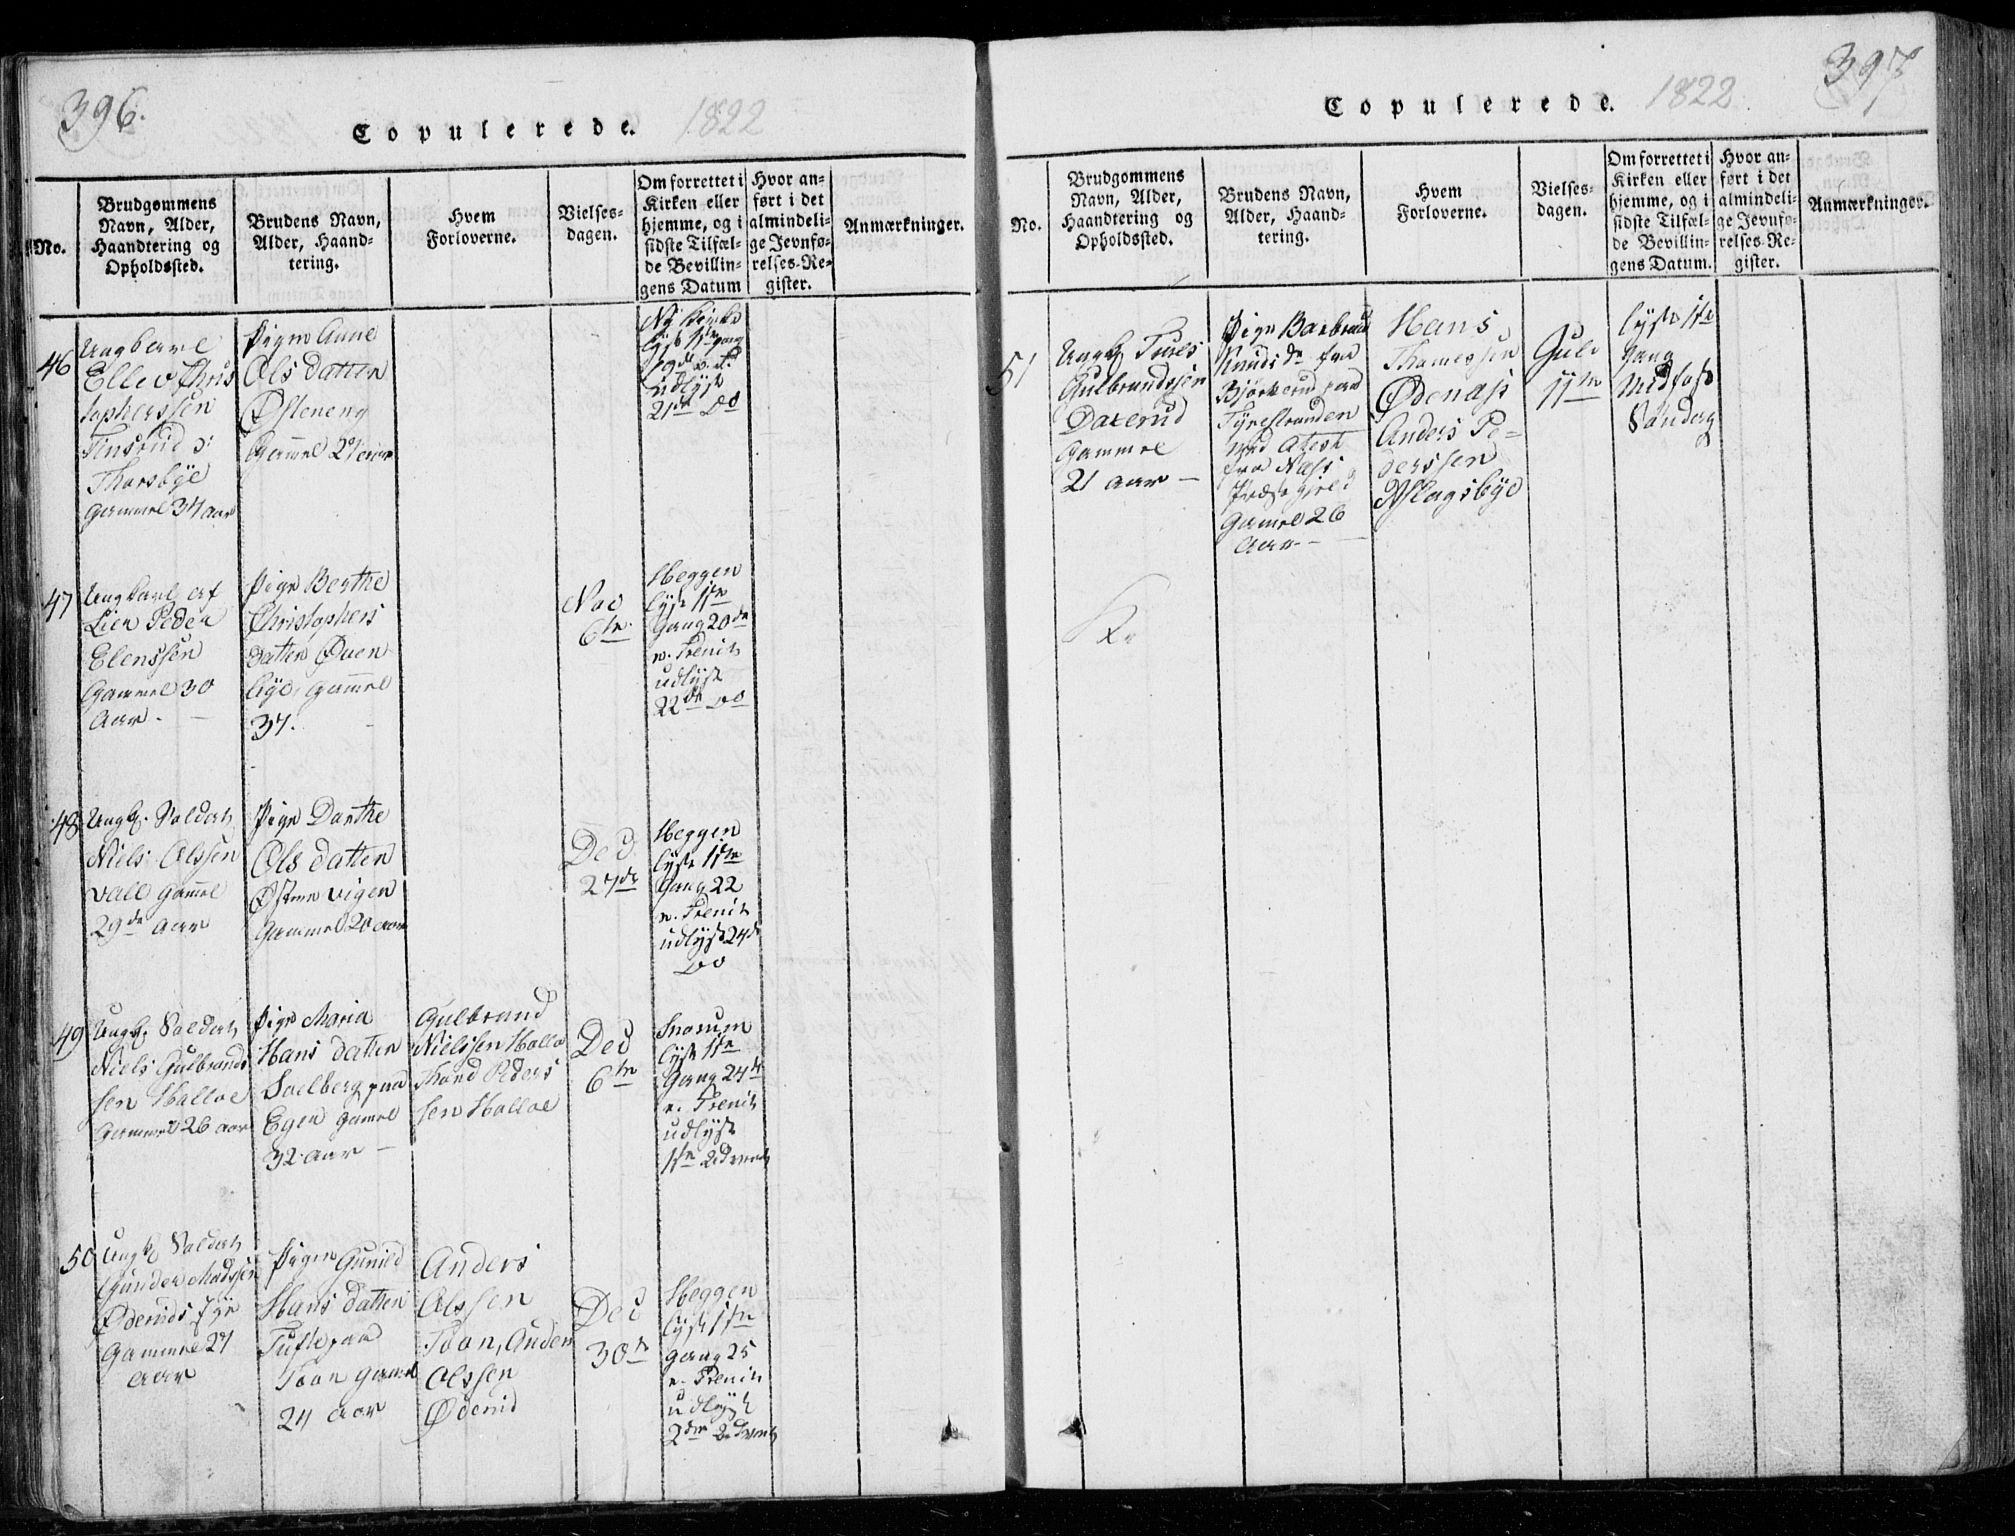 396.
Copulerede. 1822
No.
Brudgommens
Navn, Alder,
Haandtering og
Opholdssted.
Brudens Navn,
Alder, Haand-
tering.
Hvem
Forloverne.
Vielses-
dagen.
Om forrettet i
Kirken eller
hjemme, og i
sidste Tilfæl-
de Bevillin-
gens Datum
Hvor an-
ført i det
almindeli-
ge Jevnfø-
relses-Re-
gister.
Anmærkninger.
46
Ungkarl
Ellev Chris
topherssen
Finsrud
Thorsbye
gammel 34 aar
Pige Anne
Ols datter
Østeneng
Gamel
Ny Kirke
lyst 1ste gang
19de
udlyst
21de Do
47
Ungkarl af
Lien Peder
Elenssen
Gammel 30
Aar.
Pige Berthe
Christophers
datter Øven
bye, gammel
37.
Nov
6te
Heggen
lyst 1ste
Gang 20de
n. Trenit
udlyst
22de Do
48
Ungk. Soldat
Niels Olssen
Vall gamel
29de aar
Pige Dorthe
Ols datter
Østen vigen
Gammel 20 aar
Ded
27de
Heggen
lyst 1ste
Gang 22
n. Trenit
udlyst 24de
Do
49
Ungk. Soldat
Niels Gulbrands
sen Halloe
Gammel 26 aar
Pige Maria
Hans datter
Soelberg paa
Egen gamel
32 aar
Gulbrand
Nielssen Halloe
Thord Peders
sen Halloe
Ded
6te
Snarum
lyst 1ste
Gang 24de
n. Trenit
udlyst
1ste Advent
50
Ungk Soldat
Gunder Madssen
Ødenids
Gammel 27
aar
Pigen Gunild
Hans datter
Tufte paa
Toon gamel
24 aar
Anders
Olssen
Toon, Anders
Olssen
Ødenid
Ded
30te
Heggen
lyst 1ste
gang 25
n. Trenit
udlyst
2den Advent
397
Copulerede. 1822
No.
Brudgommens
Navn, Alder,
Haandtering og
Opholdssted.
Brudens Navn,
Alder, Haand-
tering.
Hvem
Forloverne.
Vielses-
dagen.
Om forrettet i
Kirken eller
hjemme, og i
sidste Tilfæl-
de Bevillin-
gens Datum.
Hvor an-
ført i det
almindeli-
ge Jevnfø-
relses-Re-
gister.
Anmærkninger.
51
Ungk Tures
Gulbrandssen
Daxerud
Gammel
21 aar
Pige Barbroe
Knuds dr fra
Bjørkerud paa
Tyrestranden
med Atest
fra Næss
Præstegield
Gamel 26
Aar
Hans
Thamessen
Ødenass
Anders Pe-
derssen
Aslagsbye
Jule
11te
lyst 1ste
Gang
Midfaste
Søndag